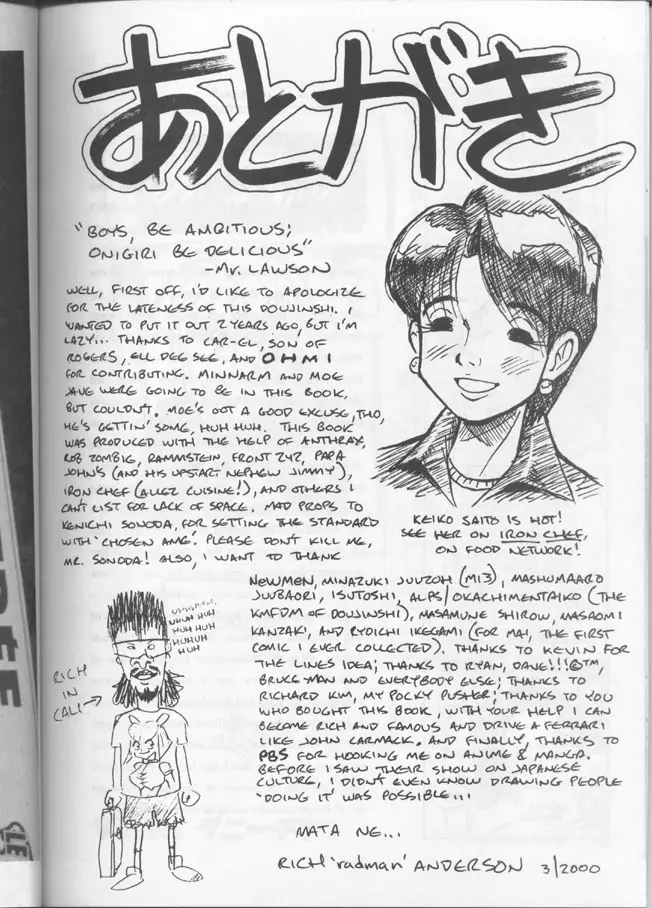 あとがき
"BOYS, BE AMBITIOUS;
ONIGIRI BE DELICIOUS"
-Mr. LAWSON
WELL, FIRST OFF, I'D LIKE TO APOLOGIZE
FOR THE LATENESS OF THIS DOUJINSHI. I
WANTED TO PUT IT OUT 2 YEARS AGO, BUT I'M
LAZY... THANKS TO CAR-EL, SON OF
ROGERS, ELL DEE SEE, AND OHMI
FOR CONTRIBUTING. MINNARM AND MOE
JAVE WERE GOING TO BE IN THIS BOOK,
BUT COULDN'T. MOE'S GOT A GOOD EXCUSE, THO,
HE'S GETTIN' SOME, HUH HUH. THIS BOOK
WAS PRODUCED WITH THE HELP OF ANTHRAX,
ROB ZOMBIE, RAMMSTEIN, FRONT 242, PAPA
JOHN'S (AND HIS UPSTART NEPHEW JIMMY),
IRON CHEF (ALLEZ CUISINE!), AND OTHERS I
CAN'T LIST FOR LACK OF SPACE. MAD PROPS TO
KENICHI SONODA, FOR SETTING THE STANDARD
WITH 'CHOSEN AME'. PLEASE DON'T KILL ME,
MR. SONODA! ALSO, I WANT TO THANK
KEIKO SAITO IS HOT!
SEE HER ON IRON CHEF,
ON FOOD NETWORK!
NEWMEN, MINAZUKI JUUZOH (M13), MASHUMAARO
JUUBAORI, ISUTOSHI, ALPS/OKACHIMENTAIKO (THE
KMFDM OF DOUJINSHI), MASAMUNE SHIROW, MASAOMI
KANZAKI, AND RYOICHI IKEGAMI (FOR MAI, THE FIRST
COMIC I EVER COLLECTED). THANKS TO KEVIN FOR
THE LINES IDEA; THANKS TO RYAN, DAVE!!!@™,
BRUCE-MAN AND EVERYBODY ELSE; THANKS TO
RICHARD KIM, MY POCKY PUSHER; THANKS TO YOU
WHO BOUGHT THIS BOOK, WITH YOUR HELP I CAN
BECOME RICH AND FAMOUS AND DRIVE A FERRARI
LIKE JOHN CARMACK. AND FINALLY, THANKS TO
PBS FOR HOOKING ME ON ANIME & MANGA.
BEFORE I SAW THEIR SHOW ON JAPANESE
CULTURE, I DIDN'T EVEN KNOW DRAWING PEOPLE
'DOING IT' WAS POSSIBLE...
MATA NE...
RICH 'radman' ANDERSON 3/2000
UHUH HUH
HUH HUH
HUHUH
HUH
RICH
IN
CALI